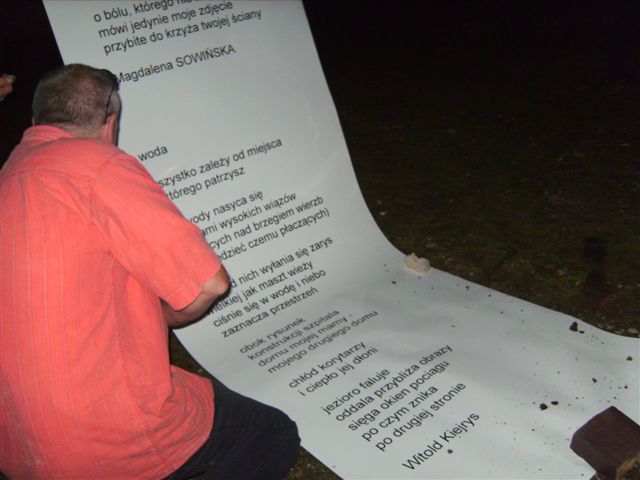 o bólu, którego nie
mówi jedynie moje zdjęcie
przybite do krzyża twojej ściany
Magdalena SOWIŃSKA
woda
szystko zależy od miejsca
którego patrzysz
wody nasyca się
ami wysokich wiązów
cych nad brzegiem wierzb
edzieć czemu płaczących)
d nich wyłania się zarys
wielkiej jak maszt wieży
ciśnie się w wodę i niebo
zaznacza przestrzeń
obok rysunek
konstrukcji szpitala
domu mojej mamy -
mojego drugiego domu
chłód korytarzy
i ciepło jej dłoni
jezioro faluje
oddala przybliża obrazy
sięga okien pociągu
po czym znika
po drugiej stronie
Witold Kiejrys